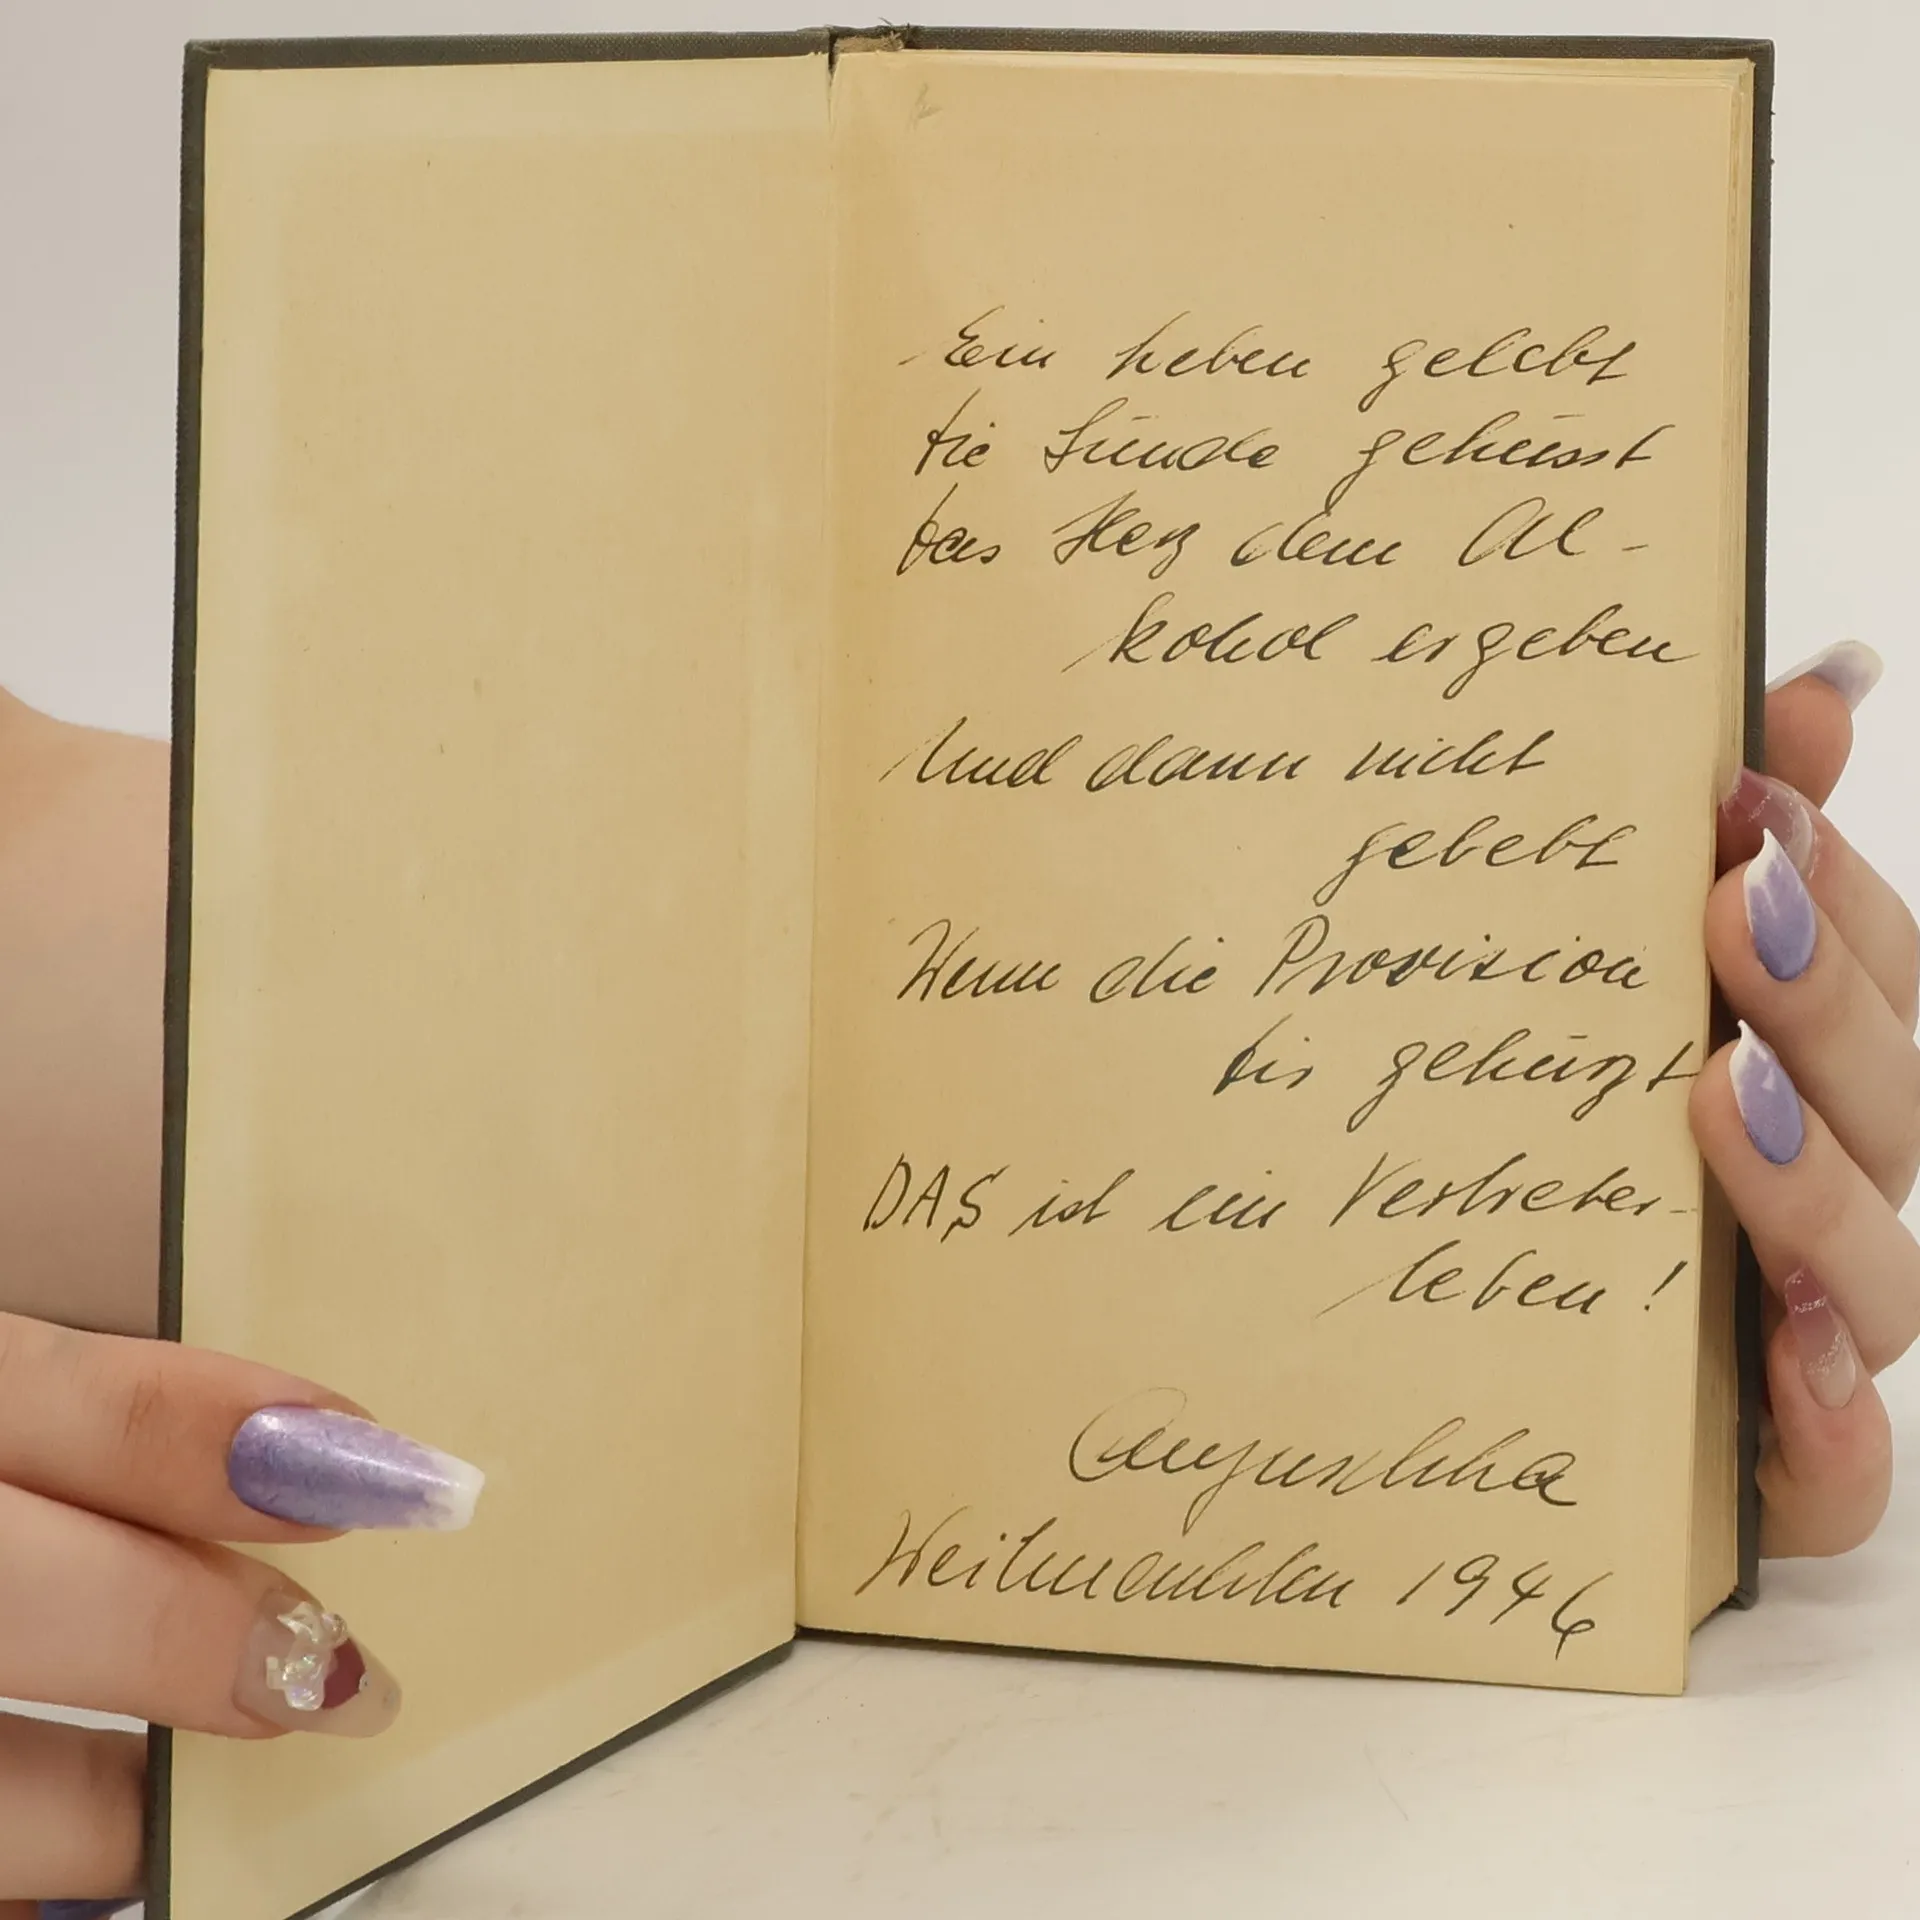 Ein Leben gelebt
die Sünde geküsst
das Herz dem Al-
kohol ergeben
Und dann nicht
gebebt
Wenn die Provision
dir gekürzt
DAS ist ein Vertreter-
leben!
Anguschka
Weihnachten 1946